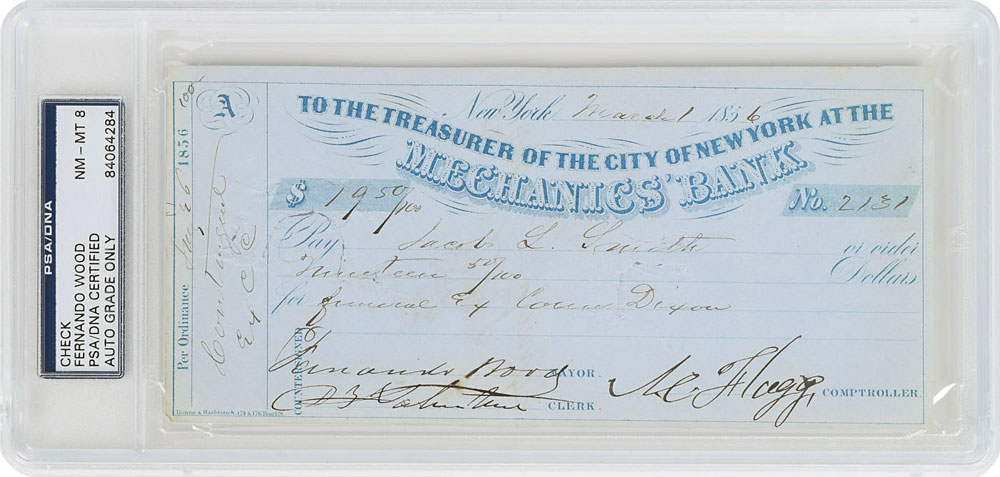 PSA/DNA
CHECK
FERNANDO WOOD
PSA/DNA CERTIFIED
AUTO GRADE ONLY
NM - MT 8
84064284
100
A
Per Ordinance 1856
Contingent
Ex C C
New York March 1 1856
TO THE TREASURER OF THE CITY OF NEW YORK AT THE
MECHANICS' BANK
$ 19 50/100
No. 2131
Pay Jacob L. Smith or order
Nineteen 50/100 Dollars
for funeral Ex Coun Dixon
COUNTERSIGNED
Fernando Wood MAYOR.
CLERK.
A C Flagg, COMPTROLLER.
Bowne & Hasbrouck, 174 & 176 Pearl St.